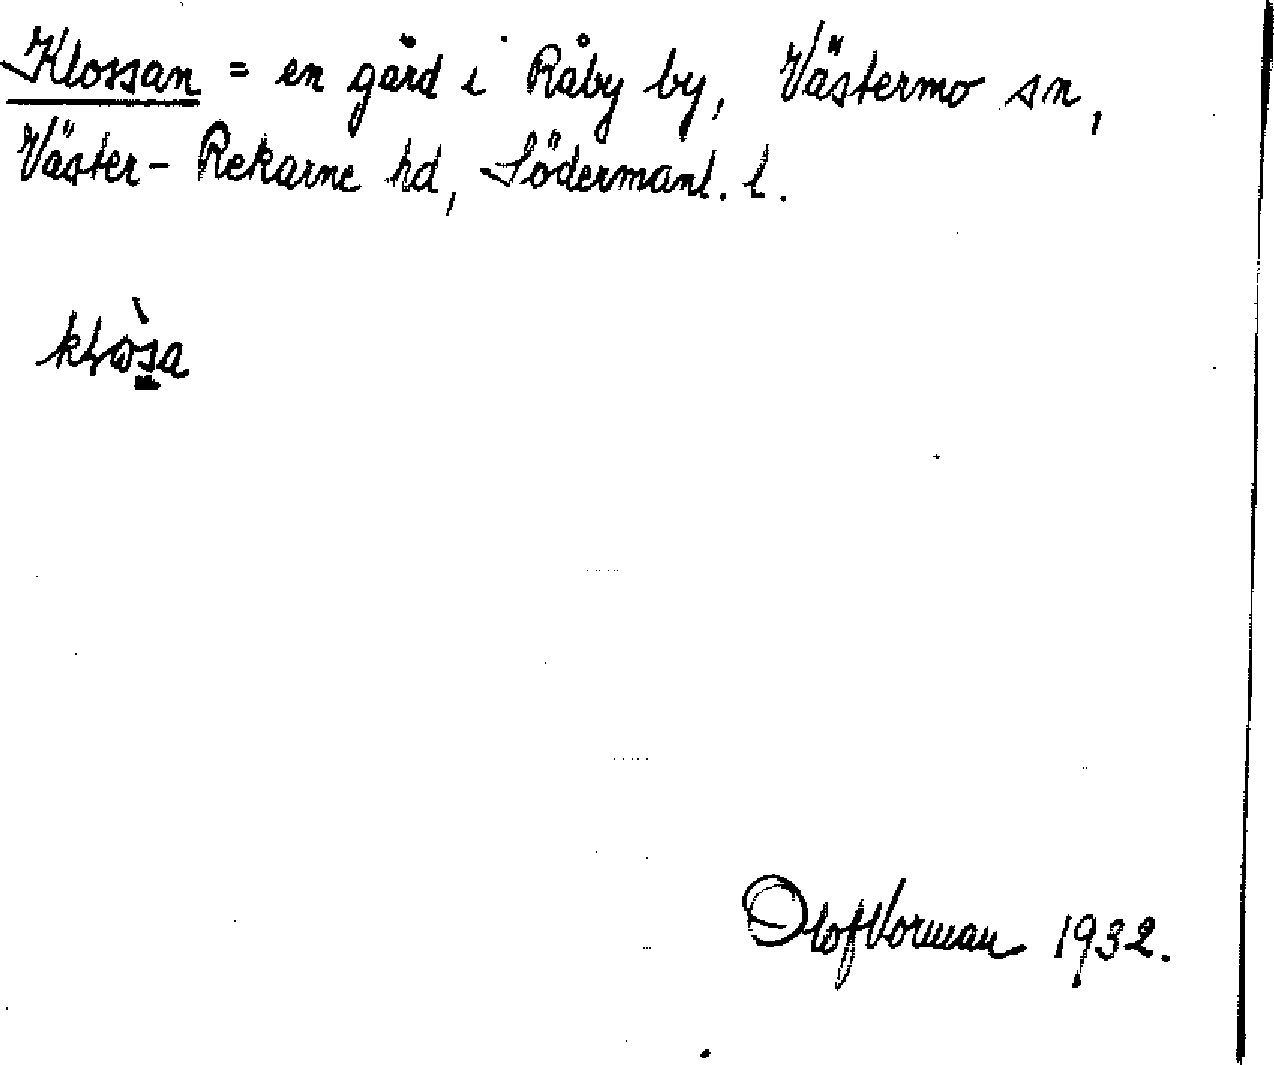 Klossan = en gård i Råby by, Västermo sn,
Väster-Rekarne hd, Södermanl. l.
Olof Vorman 1932.